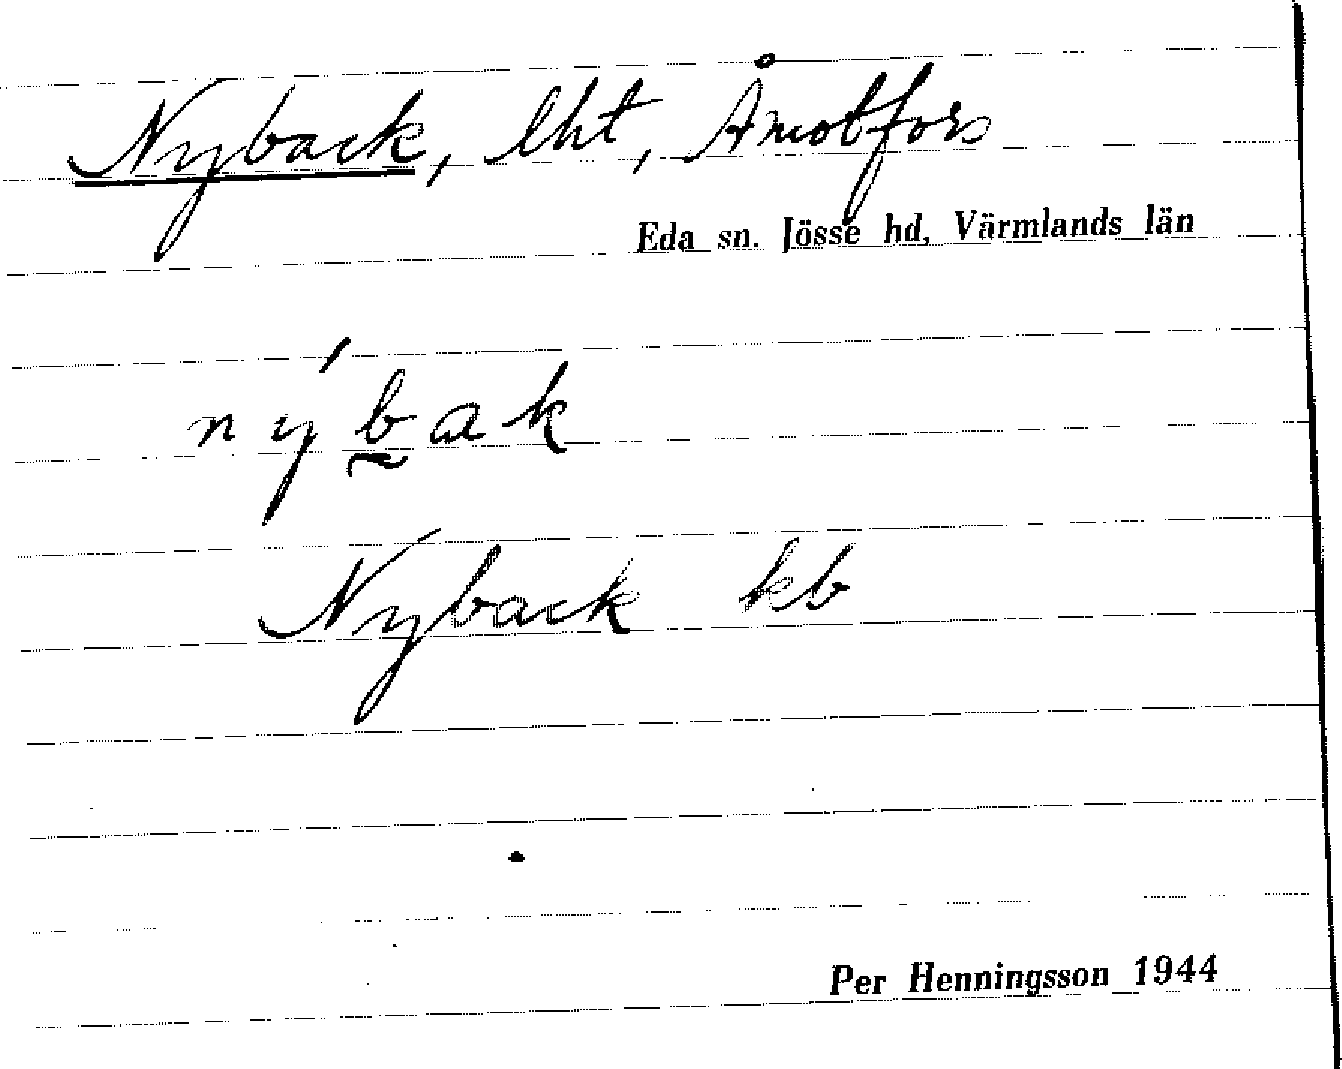 Nyback, lht, Åmotfors
Eda sn. Jösse hd, Värmlands län
ný́b̰ak
Nyback kb
Per Henningsson 1944